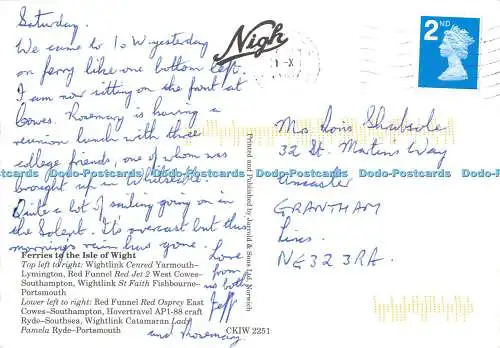 Saturday.
We came to IoW yesterday
on ferry like one bottom left.
I am now sitting on the front at
Cowes. Rosemary is having a
reunion lunch with three
college friends, one of whom was
brought up in
Quite a lot of sailing going on in
the Solent. It's overcast but this
mornings rain has gone.
Love
from
us both
Jeff
and Rosemary
Nigh
2ND
Ms Doris
32 St. Martins Way
Ancaster
GRANTHAM
Lincs.
NG32 3RA.
Printed and Published by Jarrold & Sons Ltd, Norwich
Ferries to the Isle of Wight
Top left to right: Wightlink Cenred Yarmouth–
Lymington, Red Funnel Red Jet 2 West Cowes–
Southampton, Wightlink St Faith Fishbourne–
Portsmouth
Lower left to right: Red Funnel Red Osprey East
Cowes–Southampton, Hovertravel AP1-88 craft
Ryde–Southsea, Wightlink Catamaran Lady
Pamela Ryde–Portsmouth
CKIW 2251
Dodo-Postcards Dodo-Postcards Dodo-Postcards Dodo-Postcards Dodo-Postcards